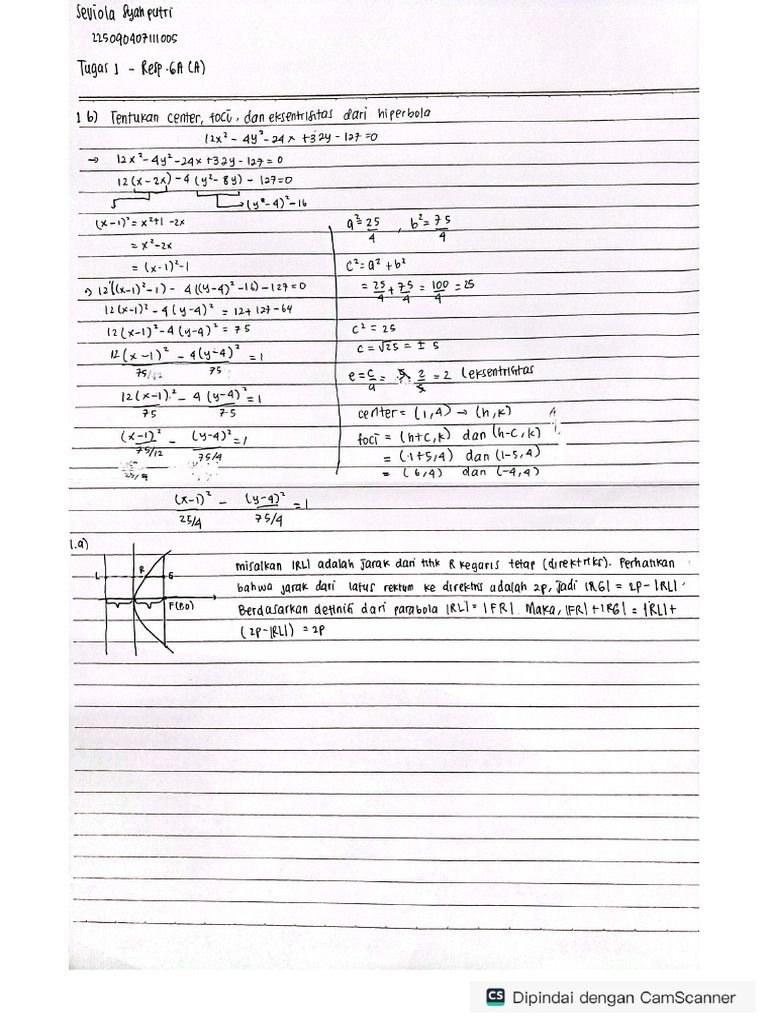 Seviola Syahputri
225090407111005
Tugas 1 - Resp. GA (A)
1 b) Tentukan center, foci, dan eksentrisitas dari hiperbola
12x² - 4y² - 24x + 32y - 127 = 0
→ 12x² - 4y² - 24x + 32y - 127 = 0
12 (x - 2x) - 4 (y² - 8y) - 127 = 0
→ (y - 4)² - 16
(x - 1)² = x² + 1 - 2x
= x² - 2x
= (x - 1)² - 1
→ 12((x - 1)² - 1) - 4((y - 4)² - 16) - 127 = 0
12(x - 1)² - 4(y - 4)² = 12 + 127 - 64
12(x - 1)² - 4(y - 4)² = 75
12(x - 1)²/75/12 - 4(y - 4)²/75 = 1
12(x - 1)²/75 - 4(y - 4)²/75 = 1
(x - 1)²/75/12 - (y - 4)²/75/4 = 1
(x - 1)²/25/4 - (y - 4)²/75/4 = 1
a² = 25/4 , b² = 75/4
c² = a² + b²
= 25/4 + 75/4 = 100/4 = 25
c² = 25
c = √25 = ± 5
e = c/a = 5 . 2/5 = 2 (eksentrisitas
center = (1,4) → (h,k)
foci = (h+c, k) dan (h-c, k)
= (1+5,4) dan (1-5,4)
= (6,4) dan (-4,4)
1.a)
L R G
F(P,0)
misalkan |RL| adalah jarak dari titik R kegaris tetap (direktriks). Perhatikan
bahwa jarak dari latus rektum ke direktris adalah 2p, jadi |RG| = 2P - |RL| .
Berdasarkan definisi dari parabola |RL| = |FR|. Maka, |FR| + |RG| = |RL| +
(2P - |RL|) = 2P
CS Dipindai dengan CamScanner